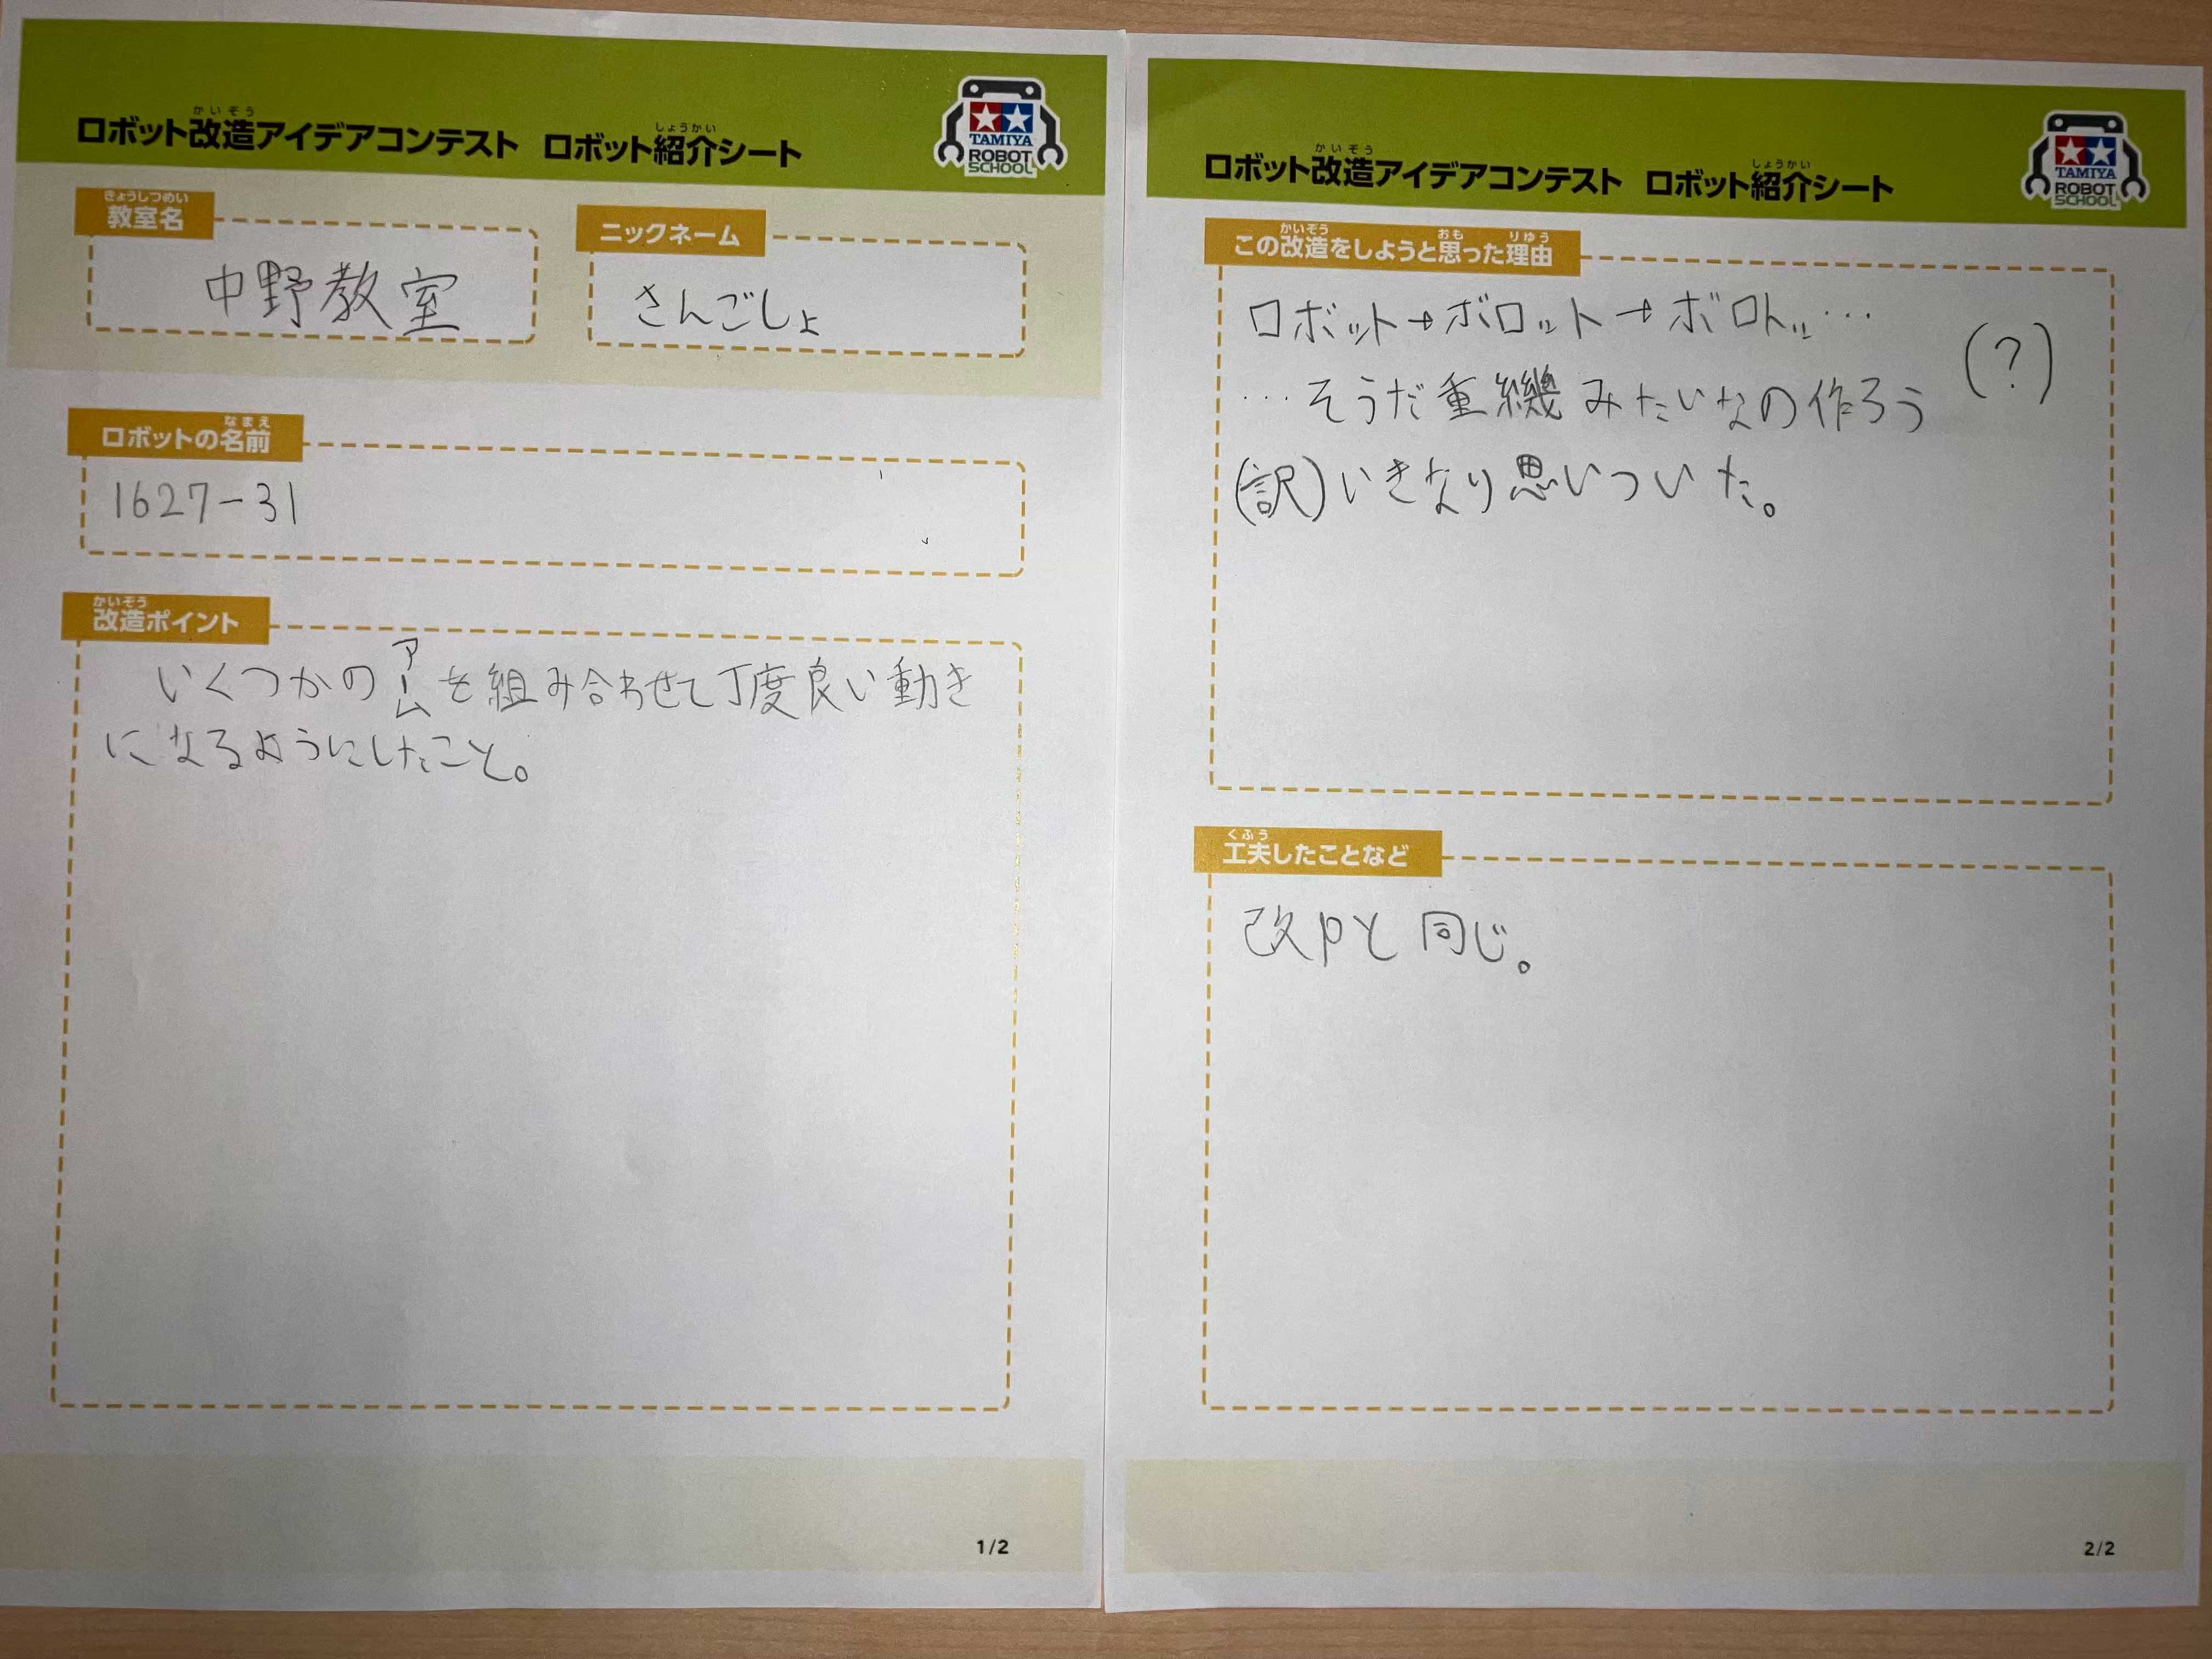 ロボット改造アイデアコンテスト ロボット紹介シート
かいぞう
しょうかい
TAMIYA
ROBOT
SCHOOL
きょうしつめい
教室名
中野教室
ニックネーム
さんごしょ
なまえ
ロボットの名前
1627-31
かいぞう
改造ポイント
いくつかのアームを組み合わせて丁度良い動き
になるようにしたこと。
1/2
かいぞう
しょうかい
ロボット改造アイデアコンテスト ロボット紹介シート
TAMIYA
ROBOT
SCHOOL
かいぞう おも りゆう
この改造をしようと思った理由
ロボット→ボロット→ボロトッ…
…そうだ重機みたいなの作ろう (?)
(訳)いきなり思いついた。
くふう
工夫したことなど
改Pと同じ。
2/2